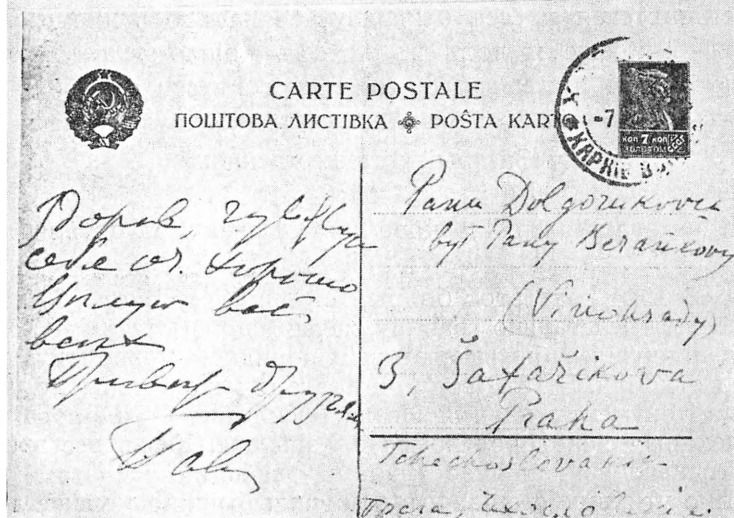 CARTE POSTALE
ПОШТОВА ЛИСТІВКА POŠTA KART
-7
КОП 7 КОП
ЗОЛОТОМ
Здоров, чувствую
себе оч. хорошо
Целую вас
всех
Привет друзьям
Пав
Panu Dolgorukovu
byt Pany Beránkovy
(Vinohrady)
3, Šafaříkova
Praha
Tchechoslovakie
Прага, Чехословакія